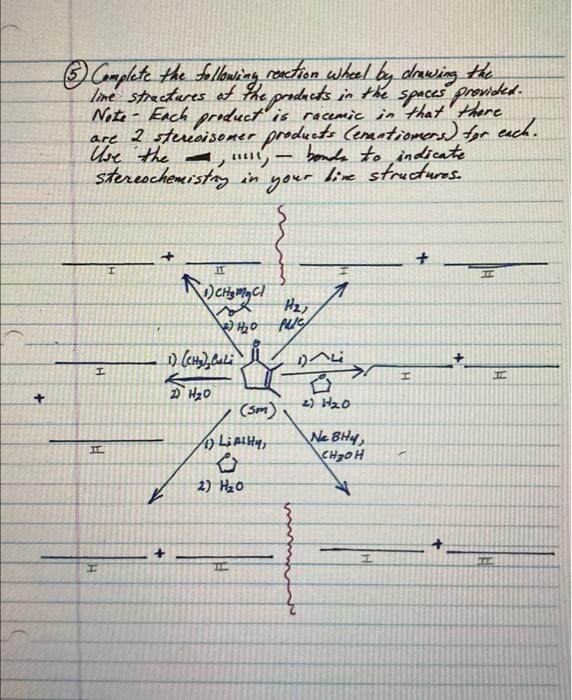 ⑤ Complete the following reaction wheel by drawing the
line structures of the products in the spaces provided.
Note - Each product is racemic in that there
are 2 stereoisomer products (enantiomers) for each.
Use the , , – bonds to indicate
stereochemistry in your line structures.
+ +
I II I II
1) CH3MgCl
2) H2O
H2,
Pd/C
O
1) (CH3)2CuLi
2) H2O
1) Li
O
2) H2O
I
+
II
I + II
(sm)
1) LiAlH4,
O
2) H2O
NaBH4,
CH3OH
+ +
I II I II